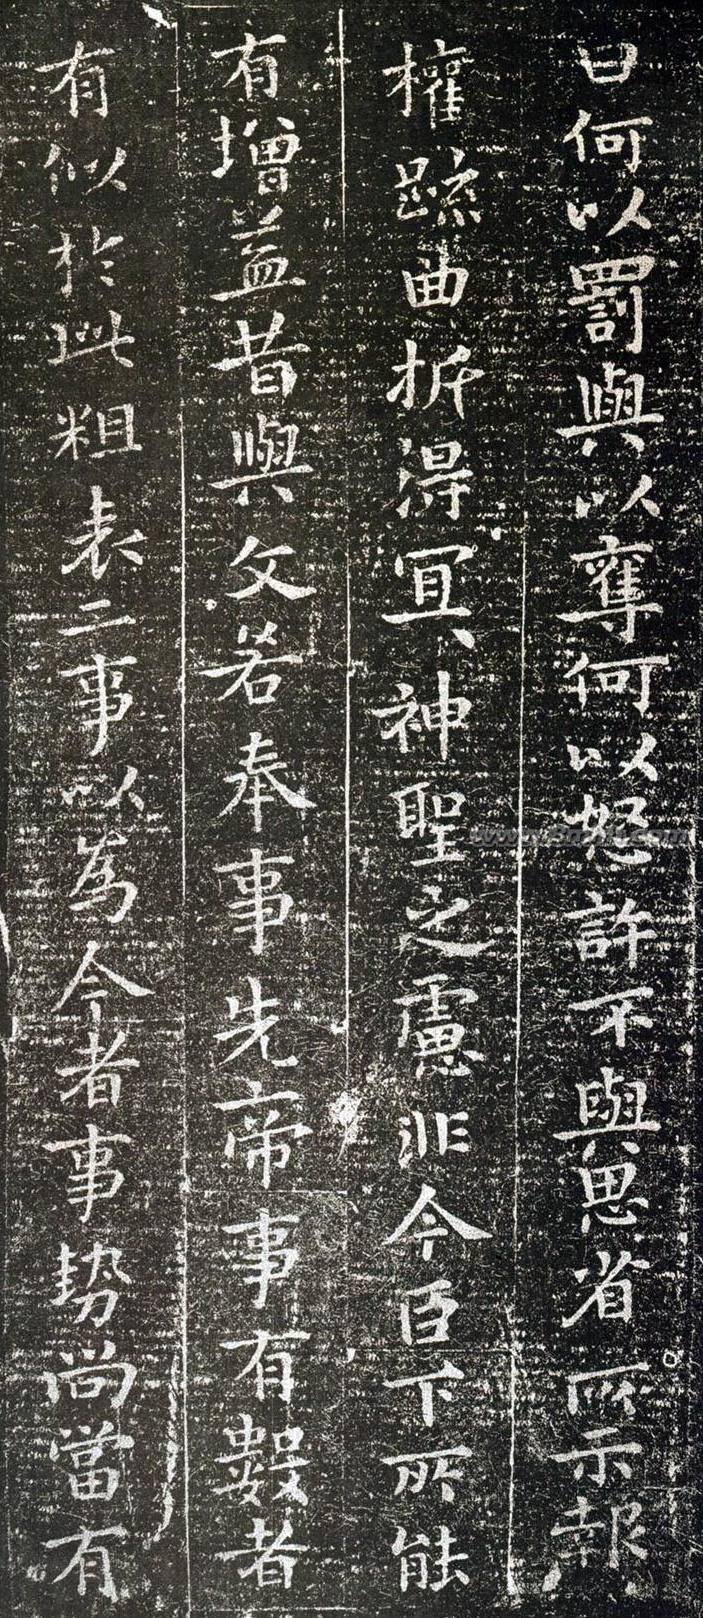 日何以罰與以奪何以怒許不與思省所示報
權踈曲折得冝神聖之慮非今臣下所能
有增益昔與文若奉事先帝事有數者
有似於此粗表二事以為今者事勢尚當有